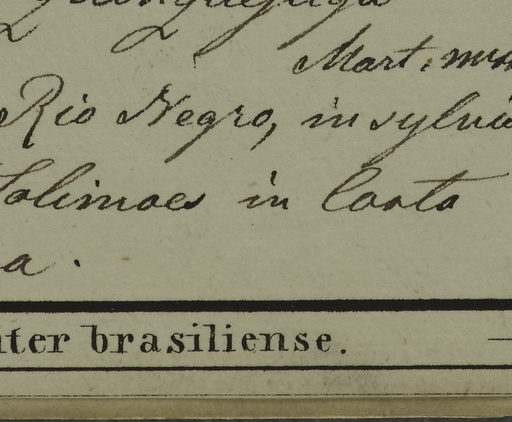 Mart. mss
Rio Negro, in sylvis
Solimoes in Costa
a.
iter brasiliense.